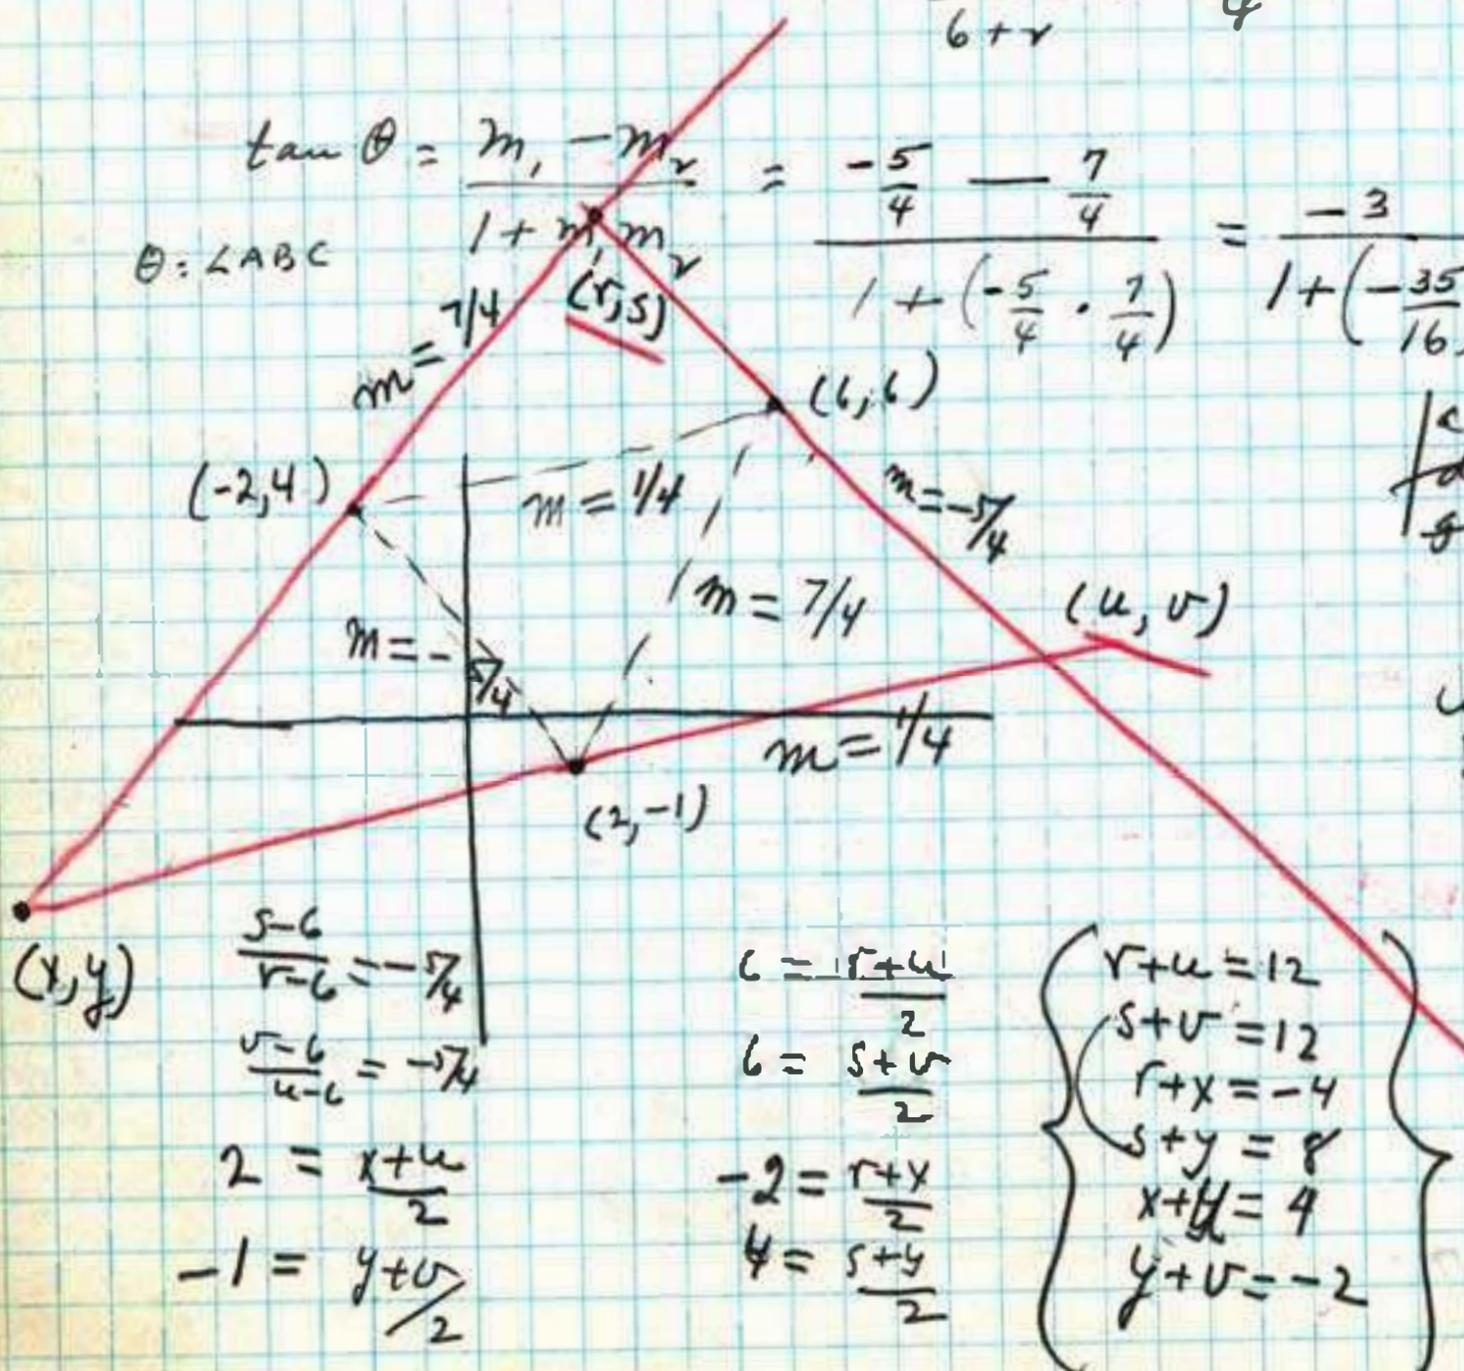 6 + r
4
tan θ = (m₁ - m₂)/(1 + m₁ m₂) = (-5/4 - 7/4)/(1 + (-5/4 · 7/4)) = -3/(1 + (-35/16)
θ: ∠ABC
(r,s)
m = 7/4
(6,6)
(-2,4)
m = 1/4
m = -5/4
m = 7/4
(u, v)
m = -5/4
m = 1/4
(2,-1)
(x,y)
(s-6)/(r-6) = -5/4
(v-6)/(u-6) = -5/4
2 = (x+u)/2
-1 = (y+v)/2
6 = (r+u)/2
6 = (s+v)/2
-2 = (r+x)/2
4 = (s+y)/2
r+u = 12
s+v = 12
r+x = -4
s+y = 8
x+u = 4
y+v = -2